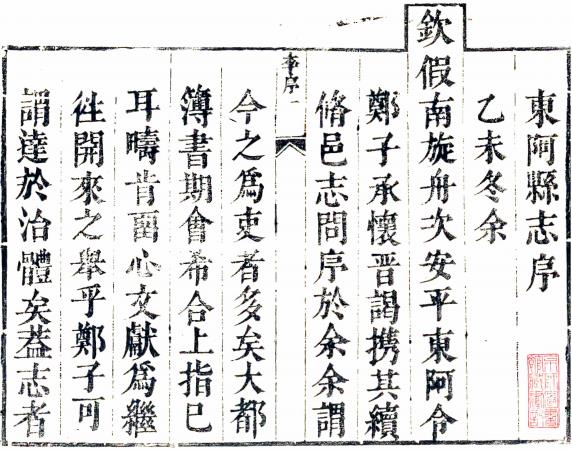 東阿縣志序
乙未冬余
欽假南旋舟次安平東阿令
鄭子承懷晉謁携其續
脩邑志問序於余余謂
李序
一
今之爲吏者多矣大都
簿書期會希合上指已
耳疇肯畱心文獻爲繼
徃開來之舉乎鄭子可
謂達於治體矣葢志者